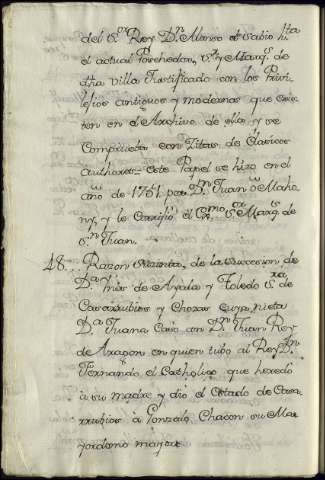 del S.or Rey D.n Alonso el Sabio h.ta
el actual Posehedor, V.ta y Marq.s de
dha villa Justificado con los Privi-
lejios antiguos y modernos que exis-
ten en el Archivo de ella y se
Comprueba con Zitas de Clasicos
authores = Este Papel se hizo en el
año de 1761 por D.n Juan O Maho-
ny, y le Corrijió el Ex.mo S.or Marq.s de
S.n Juan.
48... Razon Suscinta, de la Succesion de
D.a Ynés de Ayala y Toledo S.ra de
Casarrubios y Chozas cuya nieta
D.a Juana Casó con D.n Juan Rey
de Aragon en quien tubo al Rey D.n
Fernando el Catholico que heredó
à su madre y dio el Estado de Casa-
rrubios à Gonzalo Chacon su Ma-
yordomo mayor